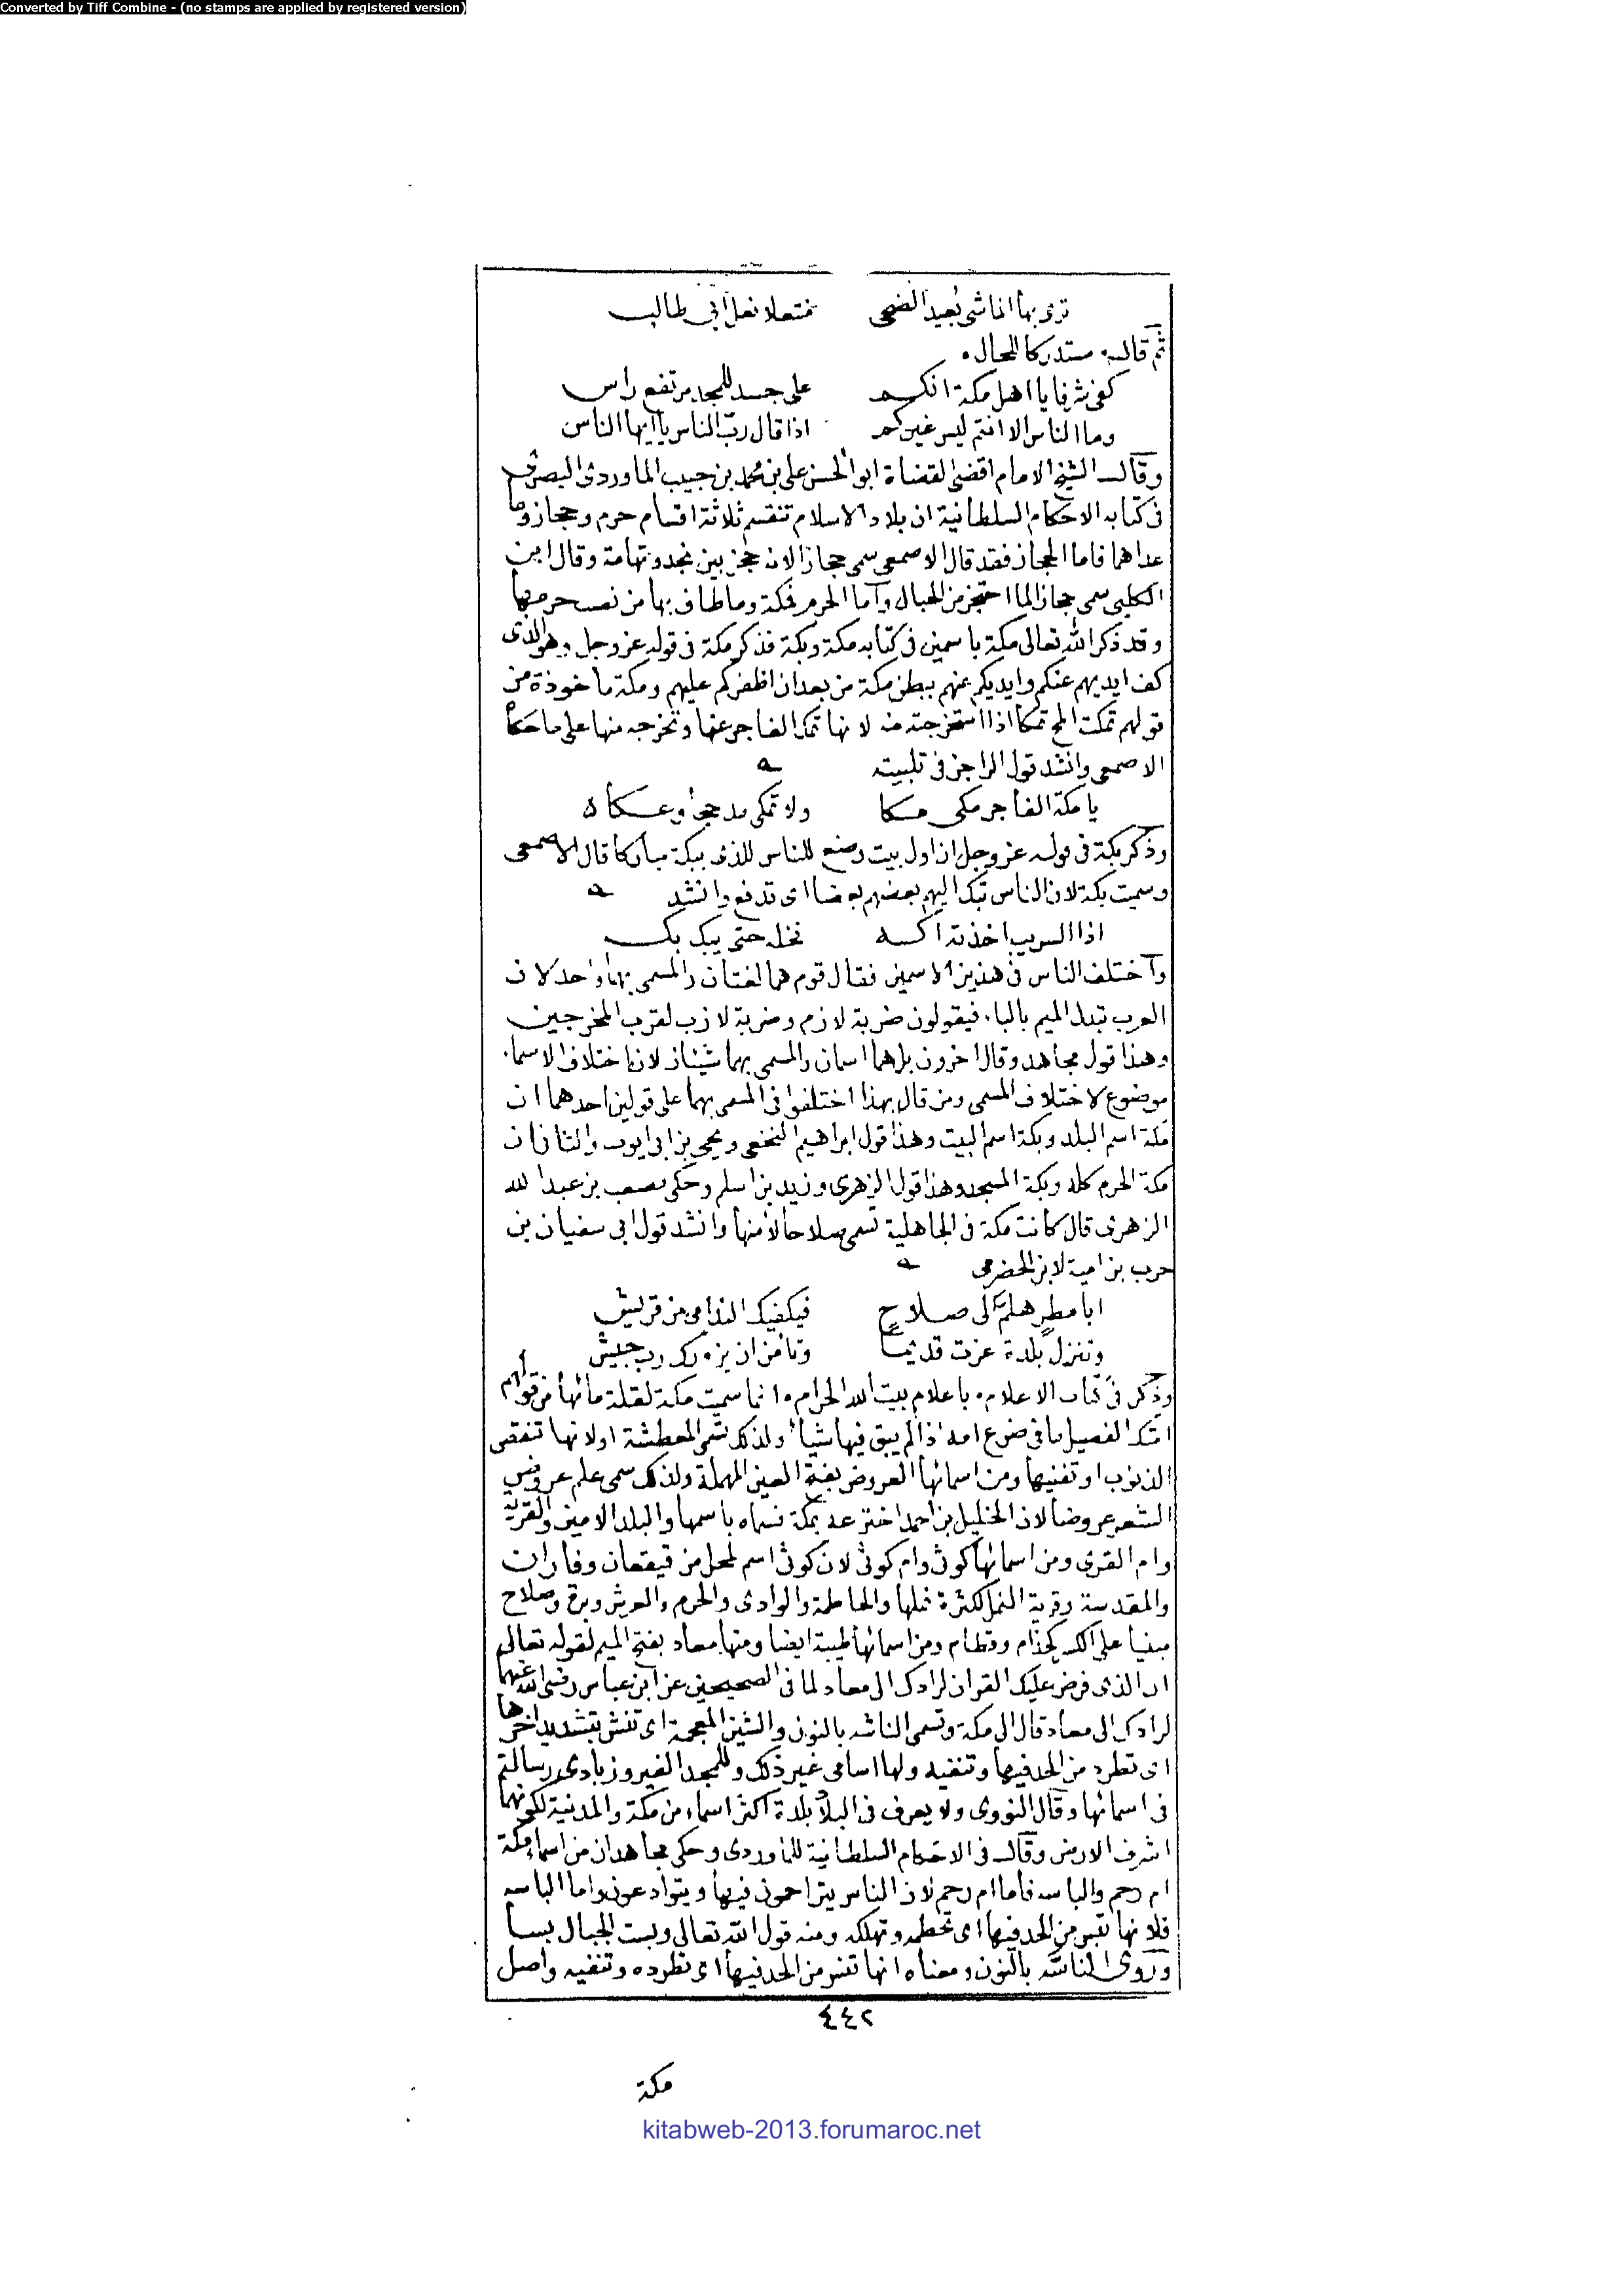 Converted by Tiff Combine - (no stamps are applied by registered version)
ترى بها الماشي بعيد الضحى منتعلا نعل ابي طالب
ثم قال مستدركا للحال
كفى شرفا يا اهل مكة انكم على جسد للمجد مرتفع راس
وما الناس الا انتم ليس غيركم اذا قال رب الناس يا ايها الناس
وقال الشيخ الامام اقضى القضاة ابو الحسن على بن محمد بن حبيب الماوردى البصرى
فى كتابه الاحكام السلطانية ان بلاد الاسلام تنقسم ثلاثة اقسام حرم وحجاز وما
عداهما فاما الحجاز فقد قال الاصمعى سمى حجازا لانه حجز بين نجد وتهامة وقال ابن
الكلبى سمى حجازا لما احتجز من الجبال واما الحرم فمكة وما طاف بها من نصب حرمها
وقد ذكر الله تعالى مكة باسمين فى كتابه مكة وبكة فذكر مكة فى قوله عز وجل وهو الذى
كف ايديهم عنكم وايديكم عنهم ببطن مكة من بعد ان اظفركم عليهم ومكة ماخوذة من
قولهم تمككت المخ تمككا اذا استخرجته منه لانها تمك الفاجر عنها وتخرجه منها على ما حكاه
الاصمعى وانشد قول الراجز فى تلبيته
يا مكة الفاجر مكى مكا ولا تمكى مذحجا وعكا
وذكر بكة فى قوله عز وجل ان اول بيت وضع للناس للذى ببكة مباركا قال الاصمعى
وسميت بكة لان الناس تبك اليهم بعضهم بعضا اى تدفع وانشد
اذا السريب اخذته اكه فخله حتى يبك بكه
واختلف الناس فى هذين الاسمين فقال قوم هما لغتان والمسمى بهما واحد لان
العرب تبدل الميم بالباء فيقولون ضربة لازم وضربة لازب لقرب المخرجين
وهذا قول مجاهد وقال اخرون بل هما اسمان والمسمى بهما شيئان لان اختلاف الاسماء
موضوع لاختلاف المسمى ومن قال بهذا اختلفوا فى المسمى بهما على قولين احدهما ان
مكة اسم البلد وبكة اسم البيت وهذا قول ابراهيم النخعى ويحيى بن ابى ايوب والثانى ان
مكة الحرم كله وبكة المسجد وهذا قول الزهرى وزيد بن اسلم وحكى مصعب بن عبد الله
الزهرى قال كانت مكة فى الجاهلية تسمى صلاحا لامنها وانشد قول ابى سفيان بن
حرب بن امية لابن الحضرمى
ابا مطر هلم الى صلاح فيكفيك الندامى من قريش
وتنزل بلدة عزت قديما وتامن ان يزورك رب جيش
وذكر فى كتاب الاعلام باعلام بيت الله الحرام انما سميت مكة لقلة مائها من قولهم
امتك الفصيل ما فى ضرع امه اذا لم يبق فيها شيا ولذلك تسمى المعطشة اولانها تنقص
الذنوب او تفنيها ومن اسمائها العروض بفتح العين المهملة ولذلك سمى علم عروض
الشعر عروضا لان الخليل بن احمد اخترعه بمكة فسماه باسمها والبلد الامين والقرية
وام القرى ومن اسمائها كوثى وام كوثى لان كوثى اسم لمحل من قيقعان وفاران
والمقدسة وقرية النمل لكثرة نملها والحاطمة والوادى والحرم والعرش وبرة وصلاح
مبنيا على الكسر كحذام وقطام ومن اسمائها طيبة ايضا ومنها معاد بفتح الميم لقوله تعالى
ان الذى فرض عليك القران لرادك الى معاد لما فى الصحيحين عن ابن عباس رضى الله عنهما
لرادك الى معاد قال الى مكة وتسمى الناشه بالنون والشين المعجمة اى تنش بتشديد اخرها
اى تطرد من الحد فيها وتنفيه ولها اسامى غير ذلك وللمجد الفيروزبادى رسالة
فى اسمائها وقال النووى ولا يعرف فى البلاد بلدة اكثر اسماء من مكة والمدينة لكونهما
اشرف الارض وقال فى الاحكام السلطانية للماوردى وحكى مجاهد ان من اسماء مكة
ام رحم والباسه فاما ام رحم لان الناس يتراحمون فيها ويتوادعون واما الباسه
فلانها تبس من الحد فيها اى تحطمه وتهلكه ومنه قول الله تعالى وبست الجبال بسا
وروى الناسه بالنون ومعناه انها تنس من الحد فيها اى تطرده وتنفيه واصل
٤٤٢
مكة
kitabweb-2013.forumaroc.net